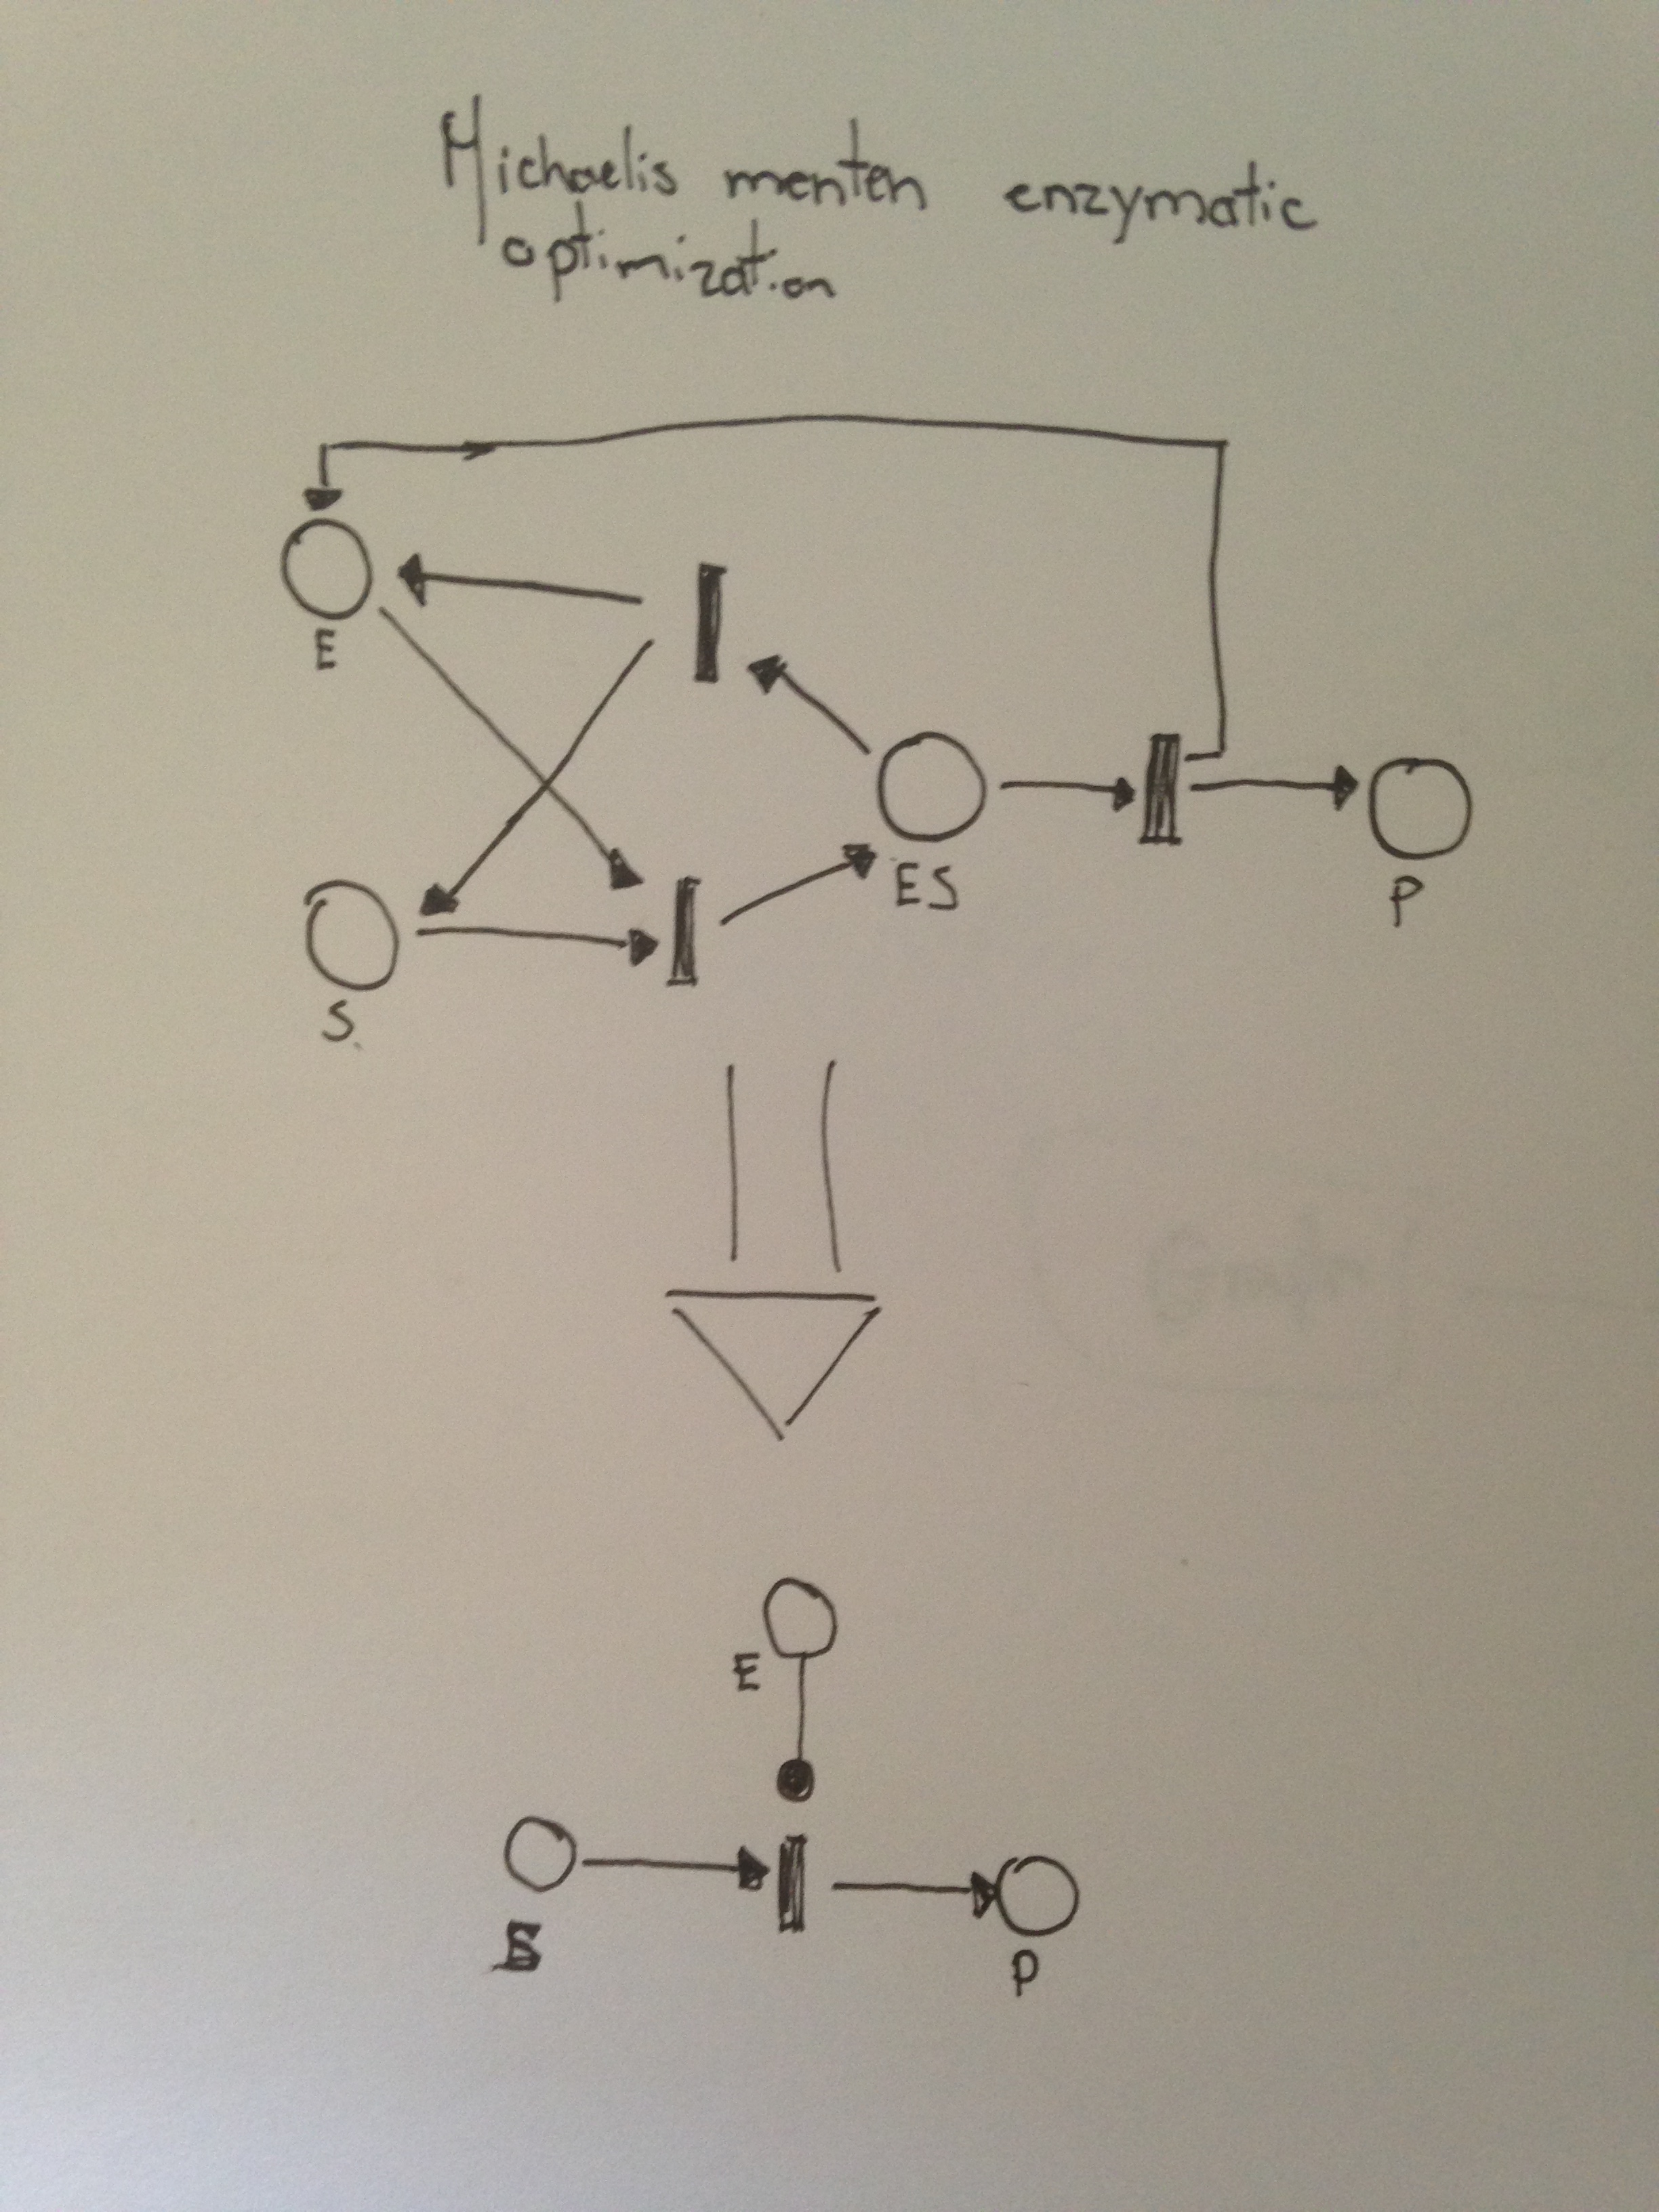 Michaelis menten enzymatic
optimization
E
ES
P
S
E
S
P